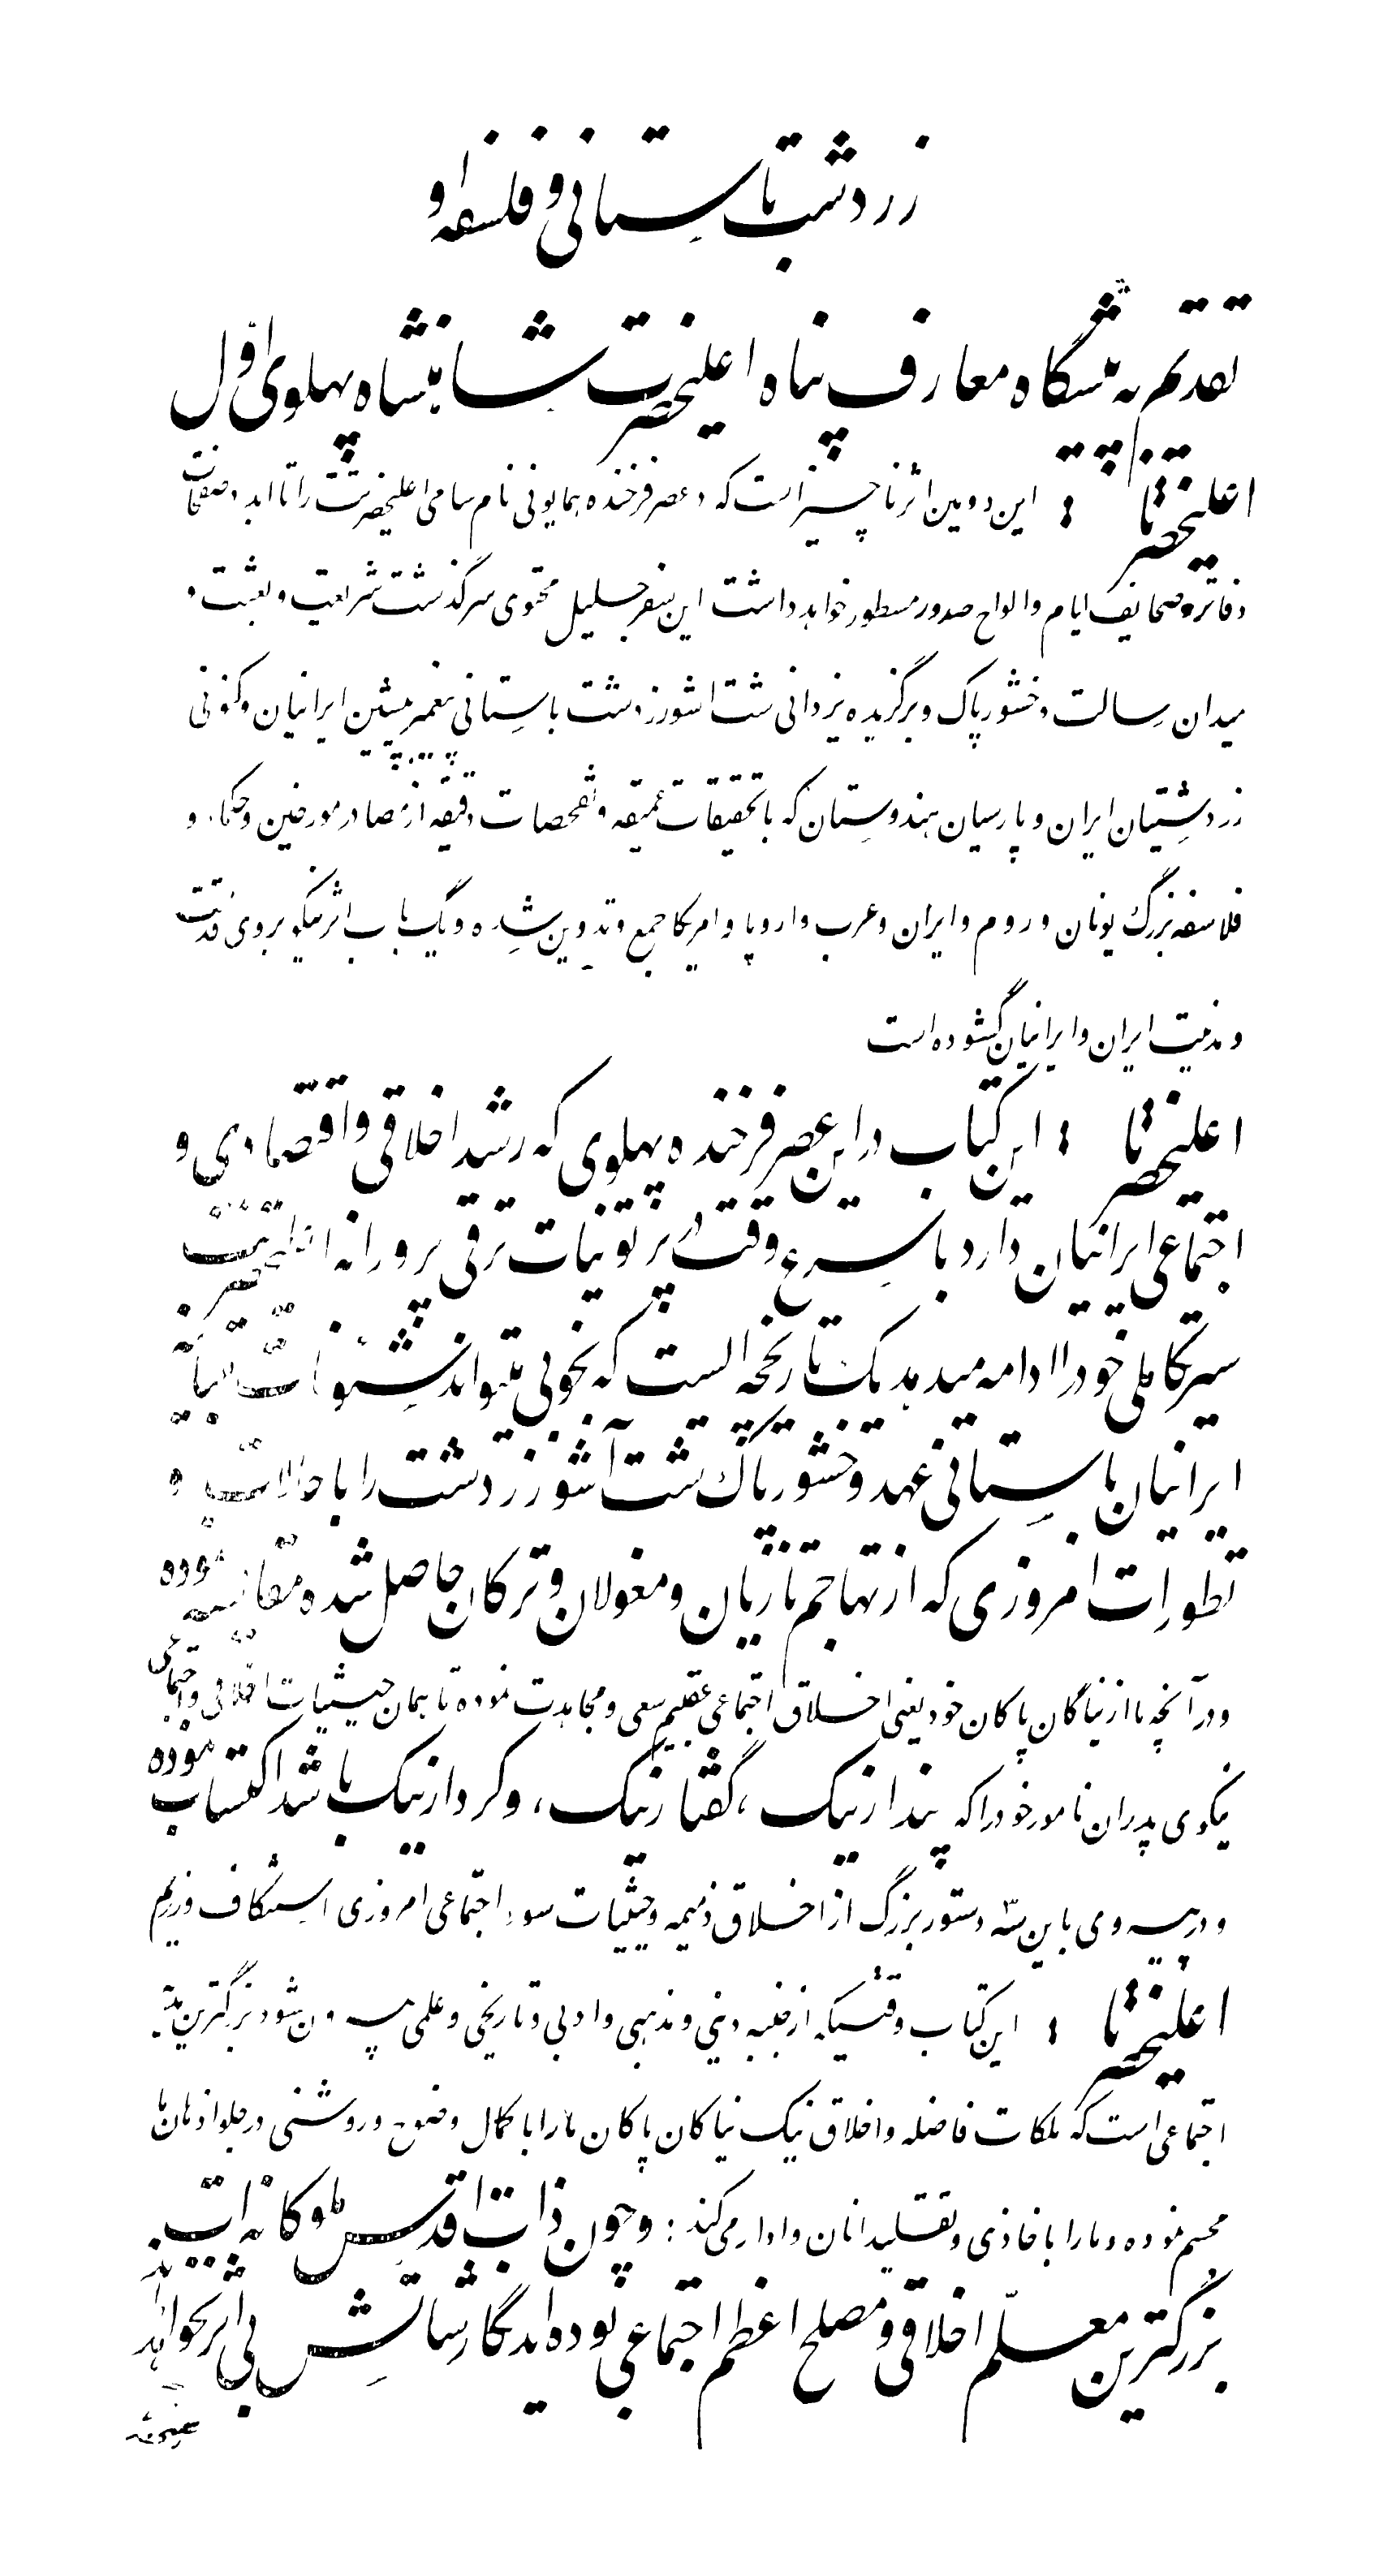 زردشت باستانی و فلسفه او
تقدیم به پیشگاه معارف پناه اعلیحضرت شاهنشاه پهلوی اول
اعلیحضرتا : این دومین اثر ناچیز است که در عصر فرخنده همایونی نام سامی اعلیحضرتت را تا ابد در صفحات
دفاتر و صحایف ایام و الواح صدور مسطور خواهد داشت این سفر جلیل محتوی سرگذشت شریعت و بعثت و
میدان رسالت وخشور پاک و برگزیده یزدانی شت اشو زردشت باستانی پیغمبر پیشین ایرانیان و کنونی
زردشتیان ایران و پارسیان هندوستان که با تحقیقات عمیقه و تفحصات دقیقه از مصادر مورخین و حکماء و
فلاسفه بزرگ یونان و روم و ایران و عرب و اروپا و امریکا جمع و تدوین شده و یک باب اثر نیکو بروی قدمت
و مدنیت ایران و ایرانیان گشوده است
اعلیحضرتا : این کتاب در این عصر فرخنده پهلوی که رشد اخلاقی و اقتصادی و
اجتماعی ایرانیان دارد با سرع وقت از پرتو نیات ترقی پرورانه اعلیحضرتت
سیر تکاملی خود را ادامه میدهد یک تاریخچه است که بخوبی میتواند شئونات
ایرانیان باستانی عهد وخشور پاک شت آشو زردشت را با حالات و
تطورات امروزی که از تهاجم تازیان و مغولان و ترکان حاصل شده مقایسه نموده
و در آنچه ما از نیاگان پاکان خود یعنی اخلاق اجتماعی عقبیم سعی و مجاهدت نموده تا همان حیثیات اخلاقی و اجتماعی
نیکوی پدران نامور خود را که پندار نیک ، گفتار نیک ، و کردار نیک باشد اکتساب نموده
و در پیروی باین سه دستور بزرگ از اخلاق ذمیمه و حیثیات سوء اجتماعی امروزی استنکاف ورزیم
اعلیحضرتا : این کتاب وقتیکه از جنبه دینی و مذهبی و ادبی و تاریخی و علمی بیرون شود بزرگترین
اجتماعی است که ملکات فاضله و اخلاق نیک نیاکان پاکان ما را با کمال وضوح و روشنی در جلو اذهان ما
مجسم نموده و ما را باخاذی و تقلید انان وادار می کند : و چون ذات اقدس ملوکانه ات
بزرگترین معلم اخلاقی و مصلح اعظم اجتماعی بوده اید نگارشاتش بی اثر نخواهد